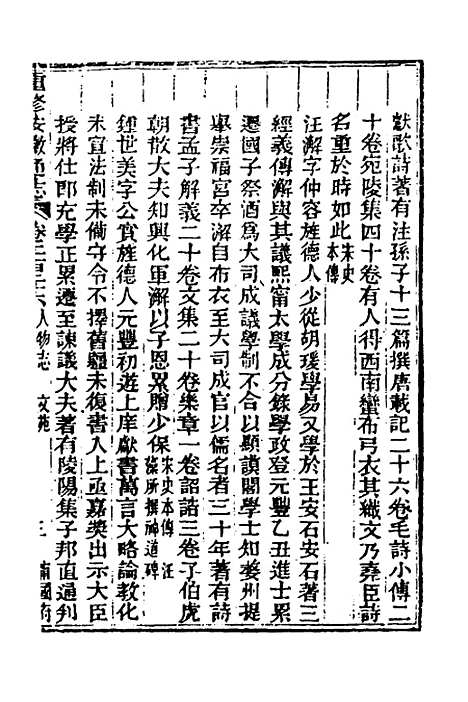 獻歌詩著有注孫子十三篇撰唐載記二十六卷毛詩小傳二
十卷宛陵集四十卷有人得西南蠻布弓衣其織文乃堯臣詩
名重於時如此宋史本傳
汪澥字仲容旌德人少從胡瑗學易又學於王安石安石著三
經義傳澥與其議熙甯太學成分錄學政登元豐乙丑進士累
遷國子祭酒爲大司成議學制不合以顯謨閣學士知婺州提
舉崇福宮卒澥自布衣至大司成官以儒名者三十年著有詩
書孟子解義二十卷文集二十卷樂章一卷詔誥三卷子伯虎
朝散大夫知興化軍澥以子恩累贈少保宋史本傳 汪藻所撰神道碑
鍾世美字公實旌德人元豐初遊上庠獻書萬言大略論敎化
未宜法制未備守令不擇舊疆未復書入上亟嘉奬出示大臣
授將仕郎充學正累遷至諫議大夫著有陵陽集子邦直通判
重修安徽通志 卷二百二十六 人物志 文苑 三 甯國府